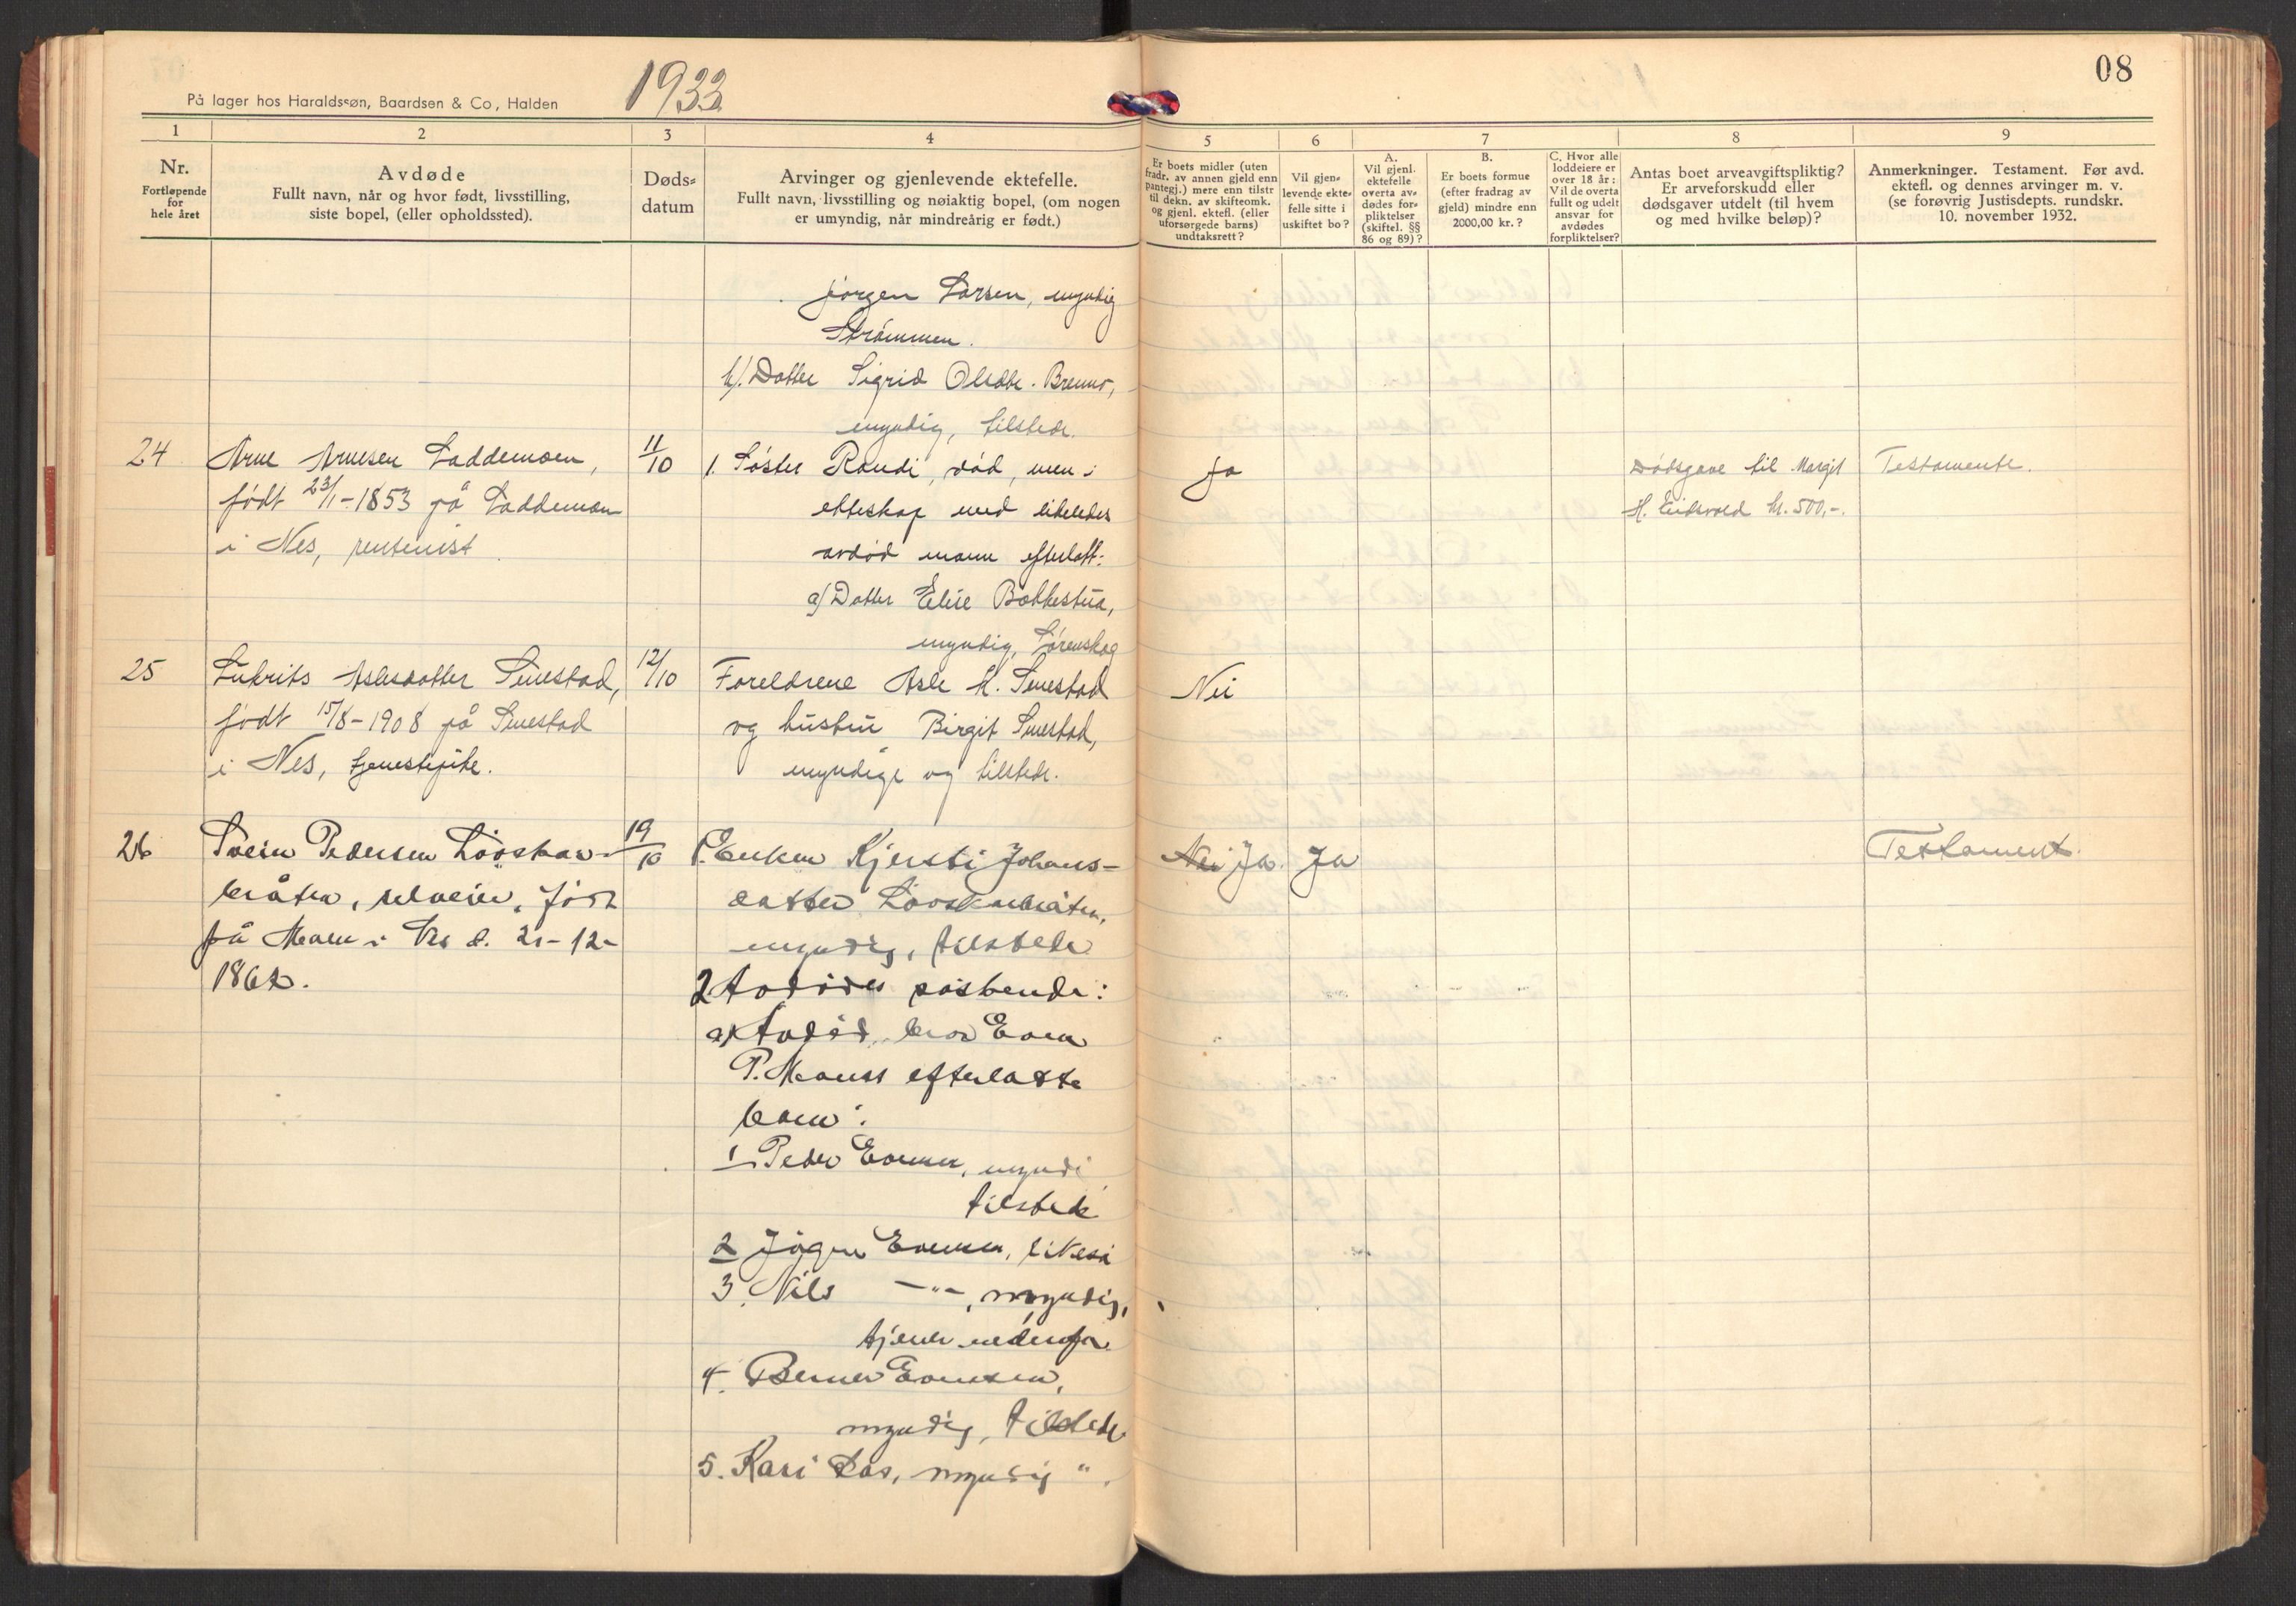 08
På lager hos Haraldssøn, Baardsen & Co, Halden
1933
1 2 3 4 5 6 7 8 9
Nr.
Fortløpende
for
hele året
Avdøde
Fullt navn, når og hvor født, livsstilling,
siste bopel, (eller opholdssted).
Døds=
datum
Arvinger og gjenlevende ektefelle.
Fullt navn, livsstilling og nøiaktig bopel, (om nogen
er umyndig, når mindreårig er født.)
Er boets midler (uten
fradr. av annen gjeld enn
pantegj.) mere enn tilstr
til dekn. av skifteomk.
og gjenl. ektefl. (eller
uforsørgede barns)
undtaksrett?
Vil gjen=
levende ekte=
felle sitte i
uskiftet bo?
A.
Vil gjenl.
ektefelle
overta av=
dødes for=
pliktelser
(skiftel. §§
86 og 89)?
B.
Er boets formue
(efter fradrag av
gjeld) mindre enn
2000,00 kr.?
C. Hvor alle
loddeiere er
over 18 år:
Vil de overta
fullt og udelt
ansvar for
avdødes
forpliktelser?
Antas boet arveavgiftspliktig?
Er arveforskudd eller
dødsgaver utdelt (til hvem
og med hvilke beløp)?
Anmerkninger. Testament. Før avd.
ektefl. og dennes arvinger m. v.
(se forøvrig Justisdepts. rundskr.
10. november 1932.
Jørgen Larsen, myndig
Strømmen.
b/. Datter Sigrid Olsdtr. Brenno,
myndig, tilstede.
24
Arne Arnesen Laddemoen,
født 23/1-1853 på Laddemoen
i Nes, rentenist
11/10
1. Søster Randi, død, men i
ekteskap med likeledes
avdød mann efterlatt:
a/ Datter Elise Bakkestua,
myndig, Lørenskog
Ja
Dødsgave til Margit
H. Eidsvold kr. 500,-.
Testamente.
25
Aslesdatter Smestad,
født 15/8-1908 på Smestad
i Nes, tjenestepike.
12/10
Foreldrene Asle H. Smestad
og hustru Birgit Smestad,
myndige og tilstede.
Nei
26
Svein Pedersen
bråten, selveier, født
på i Nes d. 21-12-
19/10
1. Enken Kjersti Johans-
datter
myndig, tilstede
2 Avdødes søskende:
a/ Avdød bror Even
P. efterlatte
barn:
1. Peder Evensen, myndi
tilstede
2 Evensen, likeså
3. Nils —"—, myndig,
tjener nedenfor
4. Berner Evensen,
myndig, tilstede
5. Kari myndig ".
Nei Ja. Ja
Testament.